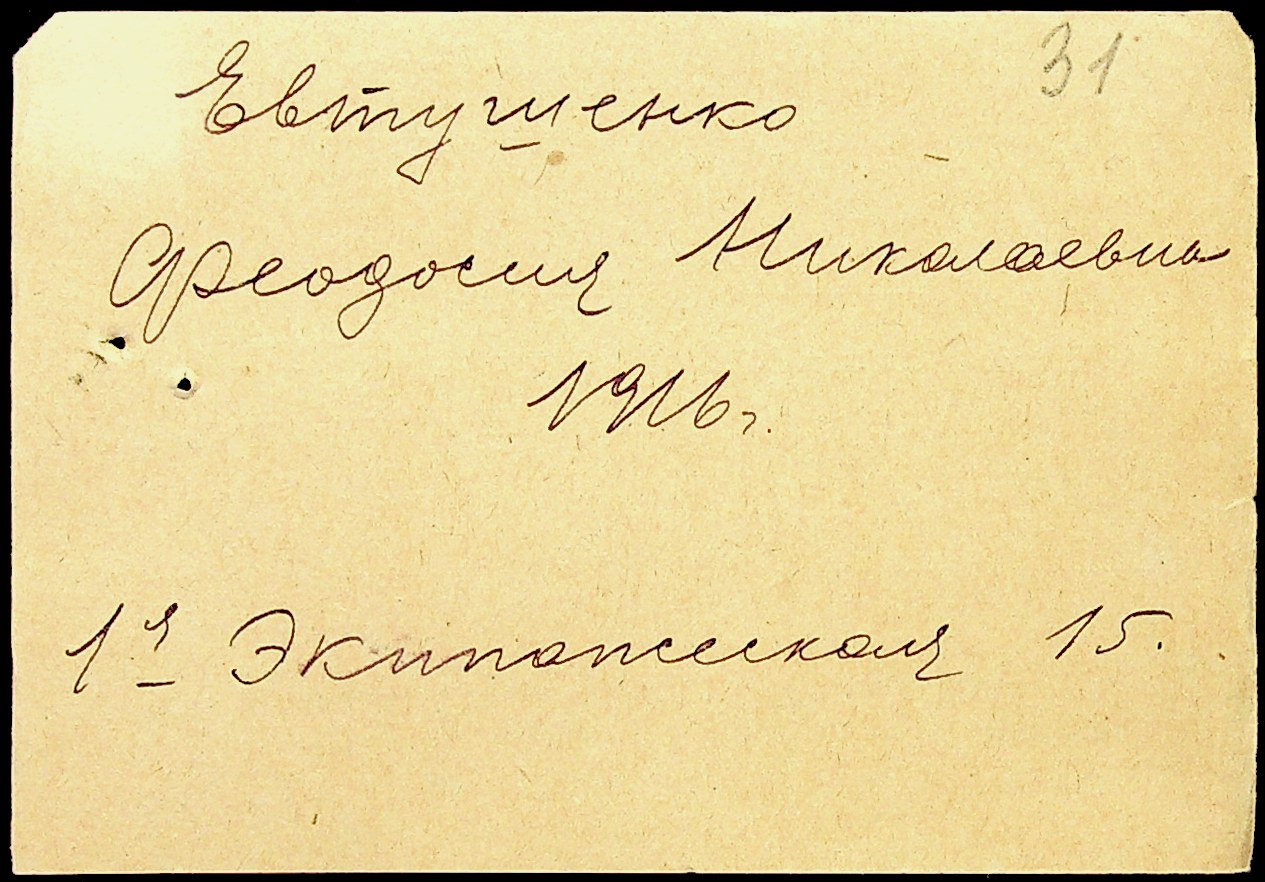 31
Евтушенко
Феодосия Николаевна
1916г.
1я Экипажеская 15.